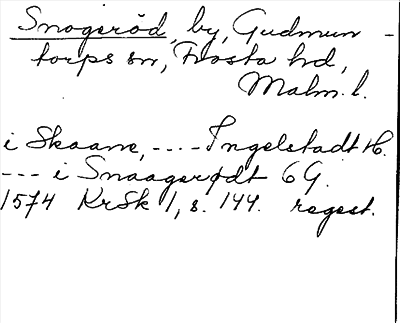 Snogeröd, by, Gudmun-
torps sn, Frosta hd,
Malm. l.
i Skaane, ---- Ingelstadt H.
--- i Snaagerødt 6 G.
1574 KrSk 1, s. 144. regest.